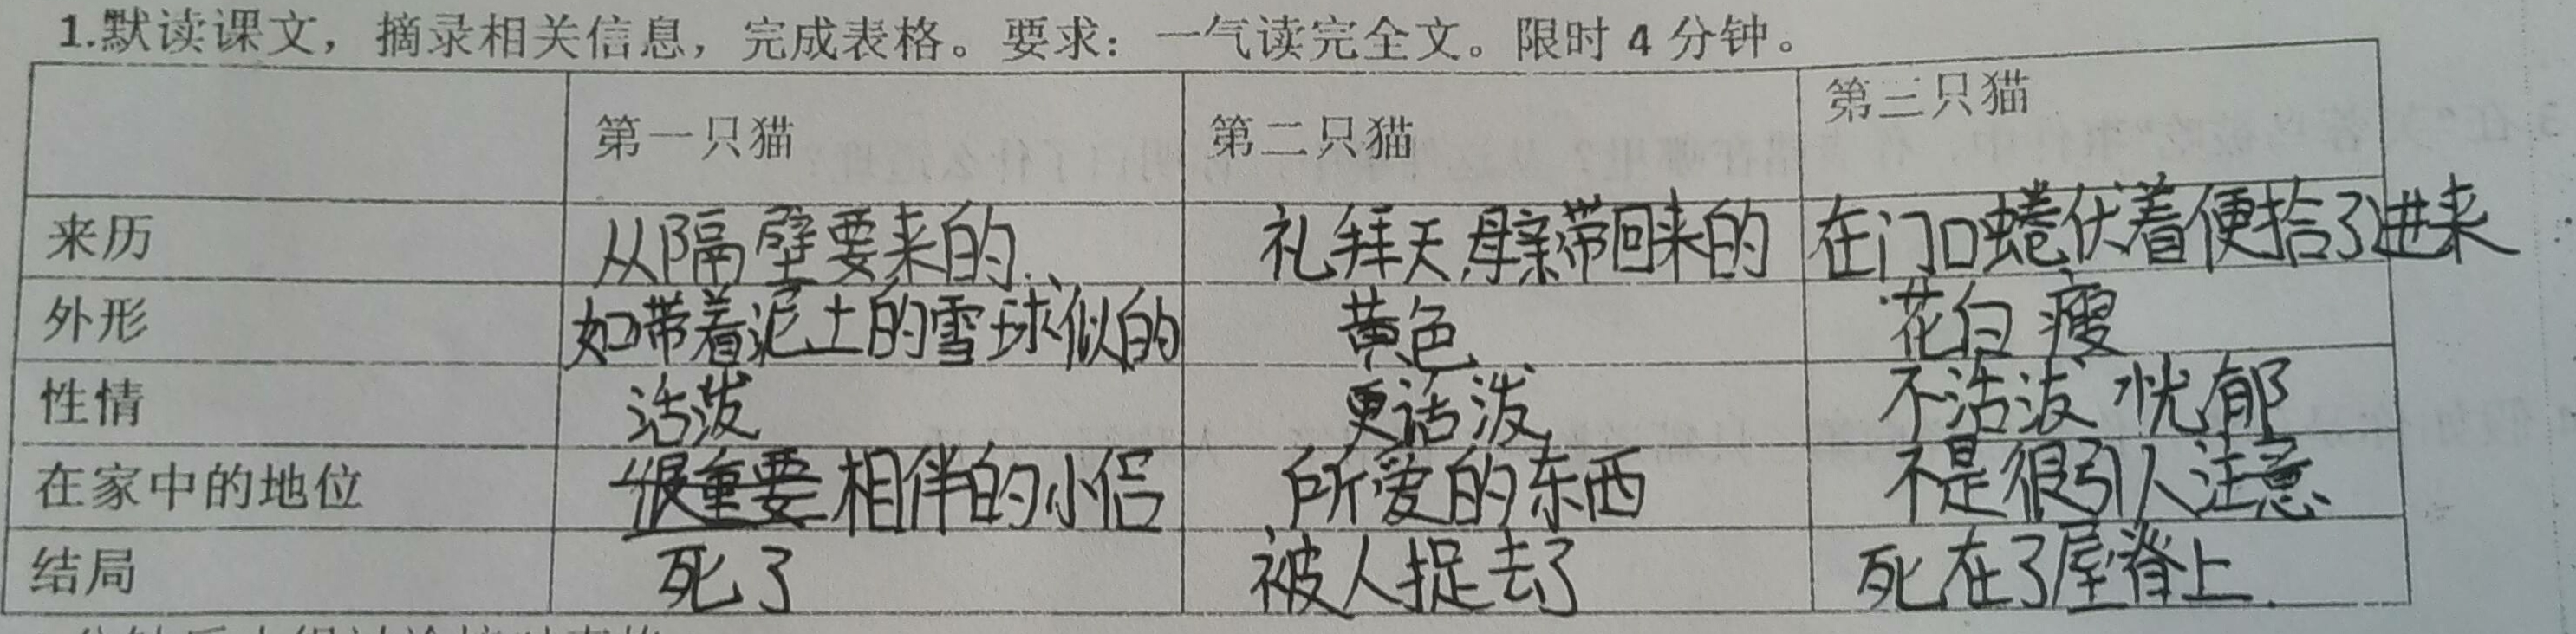 1.默读课文，摘录相关信息，完成表格。要求：一气读完全文。限时 4 分钟。
第一只猫 第二只猫 第三只猫
来历 从隔壁要来的 礼拜天母亲带回来的 在门口蜷伏着便拾了进来
外形 如带着泥土的雪球似的 黄色 花白 瘦
性情 活泼 更活泼 不活泼 忧郁
在家中的地位 很重要 相伴的小侣 所爱的东西 不是很引人注意
结局 死了 被人捉去了 死在了屋脊上